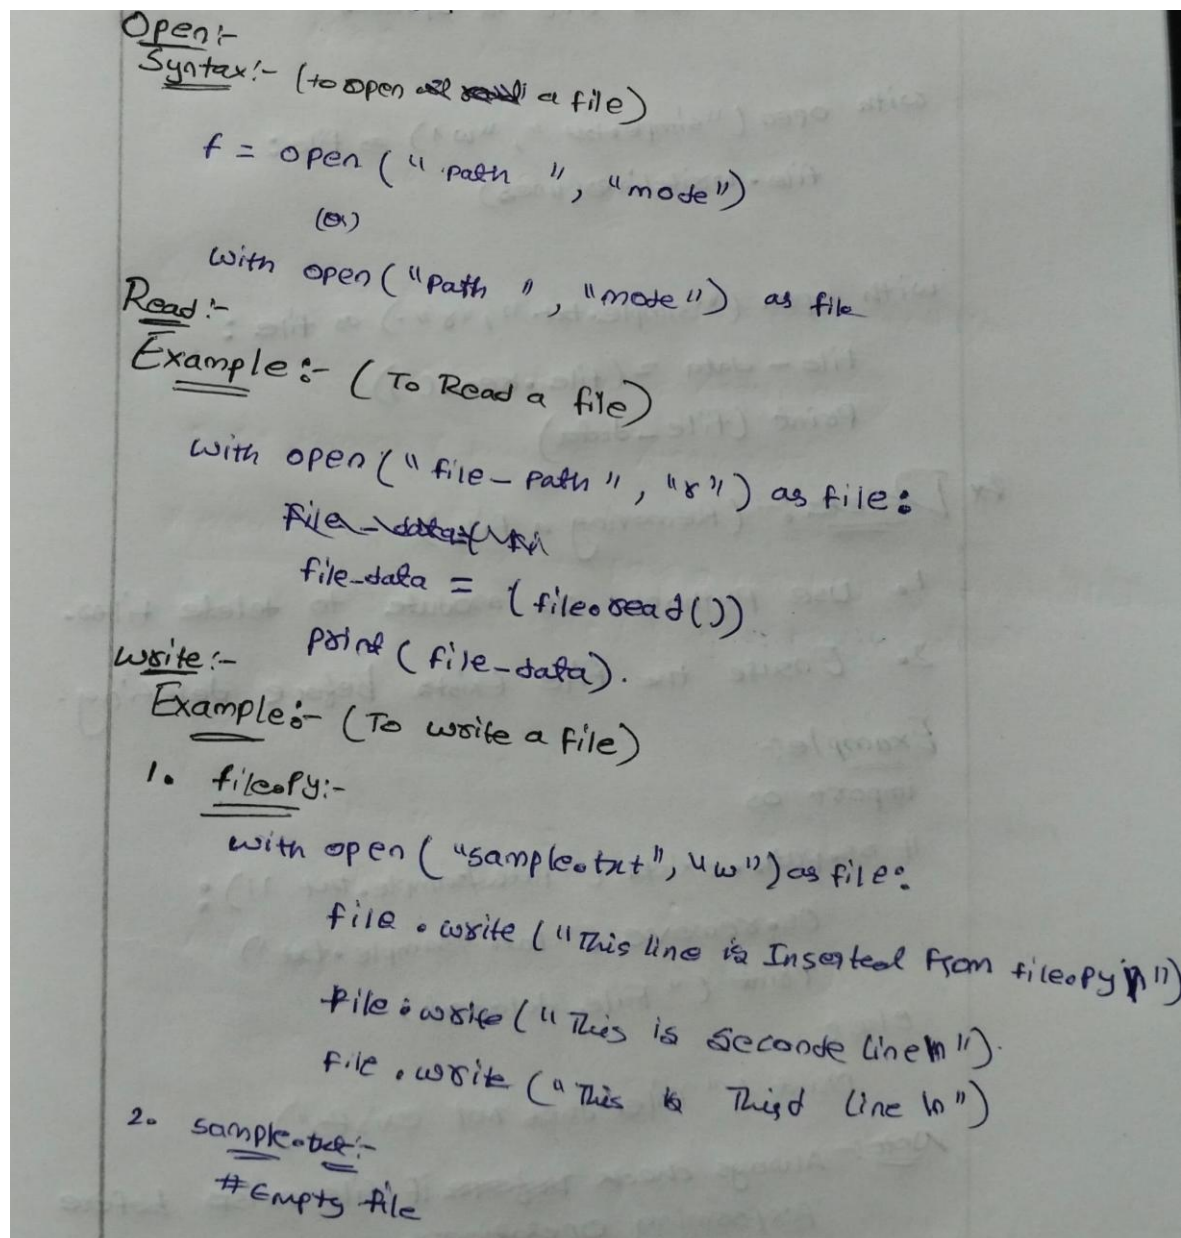 Open:-
Syntax:- (to open a file)
f = open (" path ", "mode")
(or)
with open ("path ", "mode") as file
Read:-
Example:- (To Read a file)
with open ("file-path", "r") as file:
file_data = (file.read())
print (file-data).
write:-
Example:- (To write a file)
1. file.py:-
with open ("sample.txt", "w") as file:
file.write ("This line is Inserted From file.py \n")
file.write ("This is seconde line \n").
file.write ("This is Third line \n")
2. sample.txt:-
#Empty file